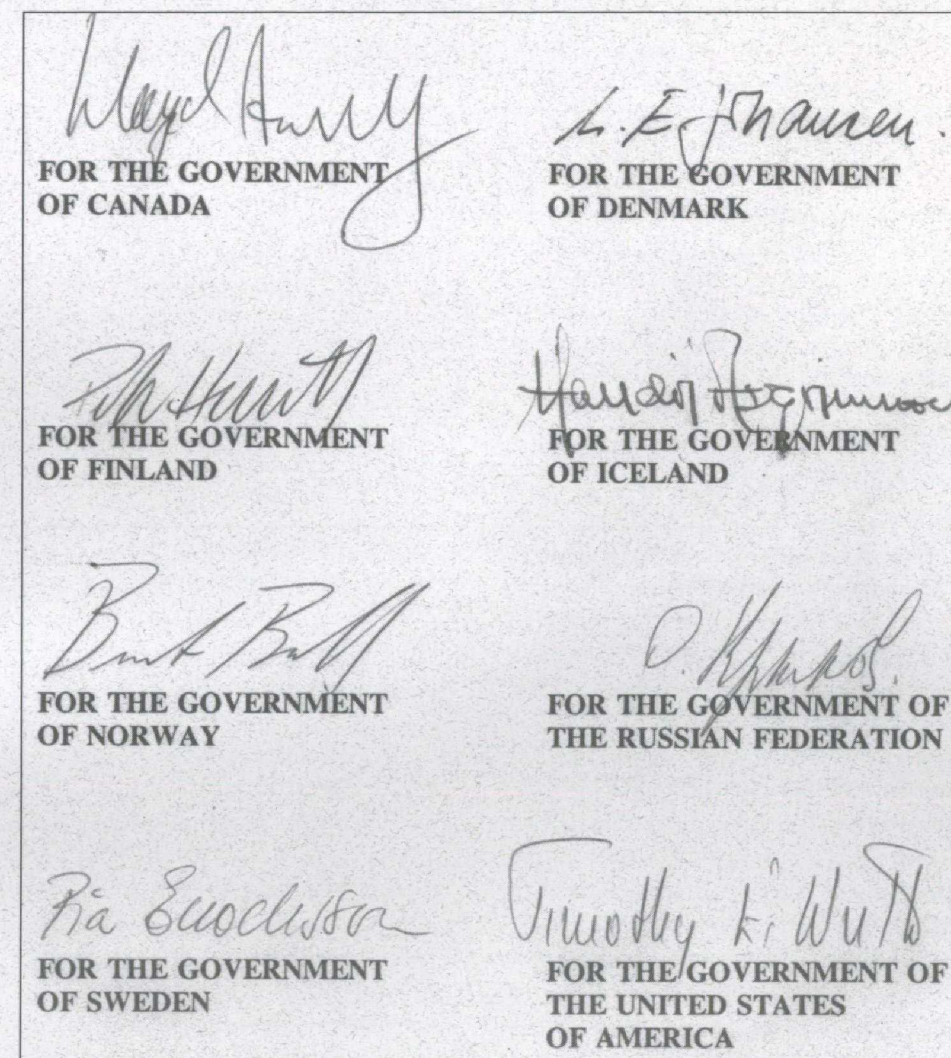 Lloyd
FOR THE GOVERNMENT
OF CANADA
L. E. Johansen
FOR THE GOVERNMENT
OF DENMARK
FOR THE GOVERNMENT
OF FINLAND
Halldór
FOR THE GOVERNMENT
OF ICELAND
FOR THE GOVERNMENT
OF NORWAY
FOR THE GOVERNMENT OF
THE RUSSIAN FEDERATION
Pia Enochsson
FOR THE GOVERNMENT
OF SWEDEN
Timothy E. Wirth
FOR THE GOVERNMENT OF
THE UNITED STATES
OF AMERICA